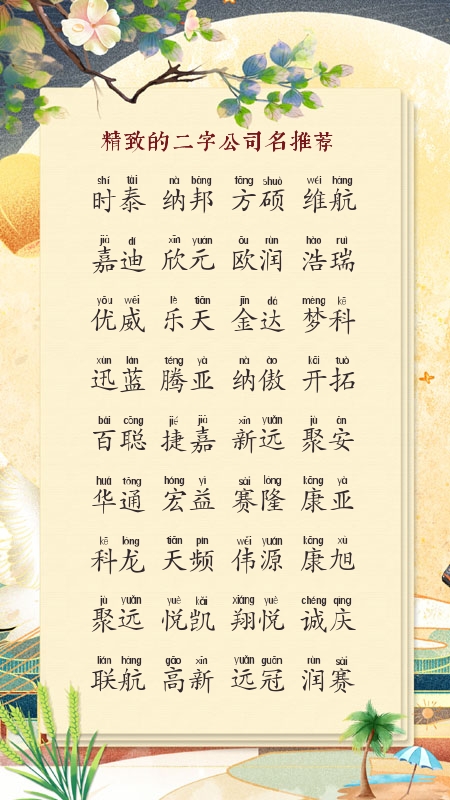 精致的二字公司名推荐
shí tài nà bāng fāng shuò wéi háng
时泰 纳邦 方硕 维航
jiā dí xīn yuán ōu rùn hào ruì
嘉迪 欣元 欧润 浩瑞
yōu wēi lè tiān jīn dá mèng kē
优威 乐天 金达 梦科
xùn lán téng yà nà ào kāi tuò
迅蓝 腾亚 纳傲 开拓
bǎi cōng jié jiā xīn yuǎn jù ān
百聪 捷嘉 新远 聚安
huá tōng hóng yì sài lóng kāng yà
华通 宏益 赛隆 康亚
kē lóng tiān pín wěi yuán kāng xù
科龙 天频 伟源 康旭
jù yuǎn yuè kǎi xiáng yuè chéng qìng
聚远 悦凯 翔悦 诚庆
lián háng gāo xīn yuǎn guān rùn sài
联航 高新 远冠 润赛